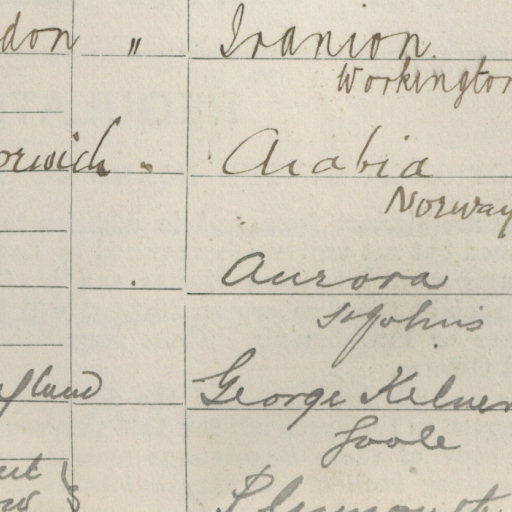 don " Iranion.
Workington
orwich " Arabia
Norway
Aurora
St Johns
gland George Kilner
Goole